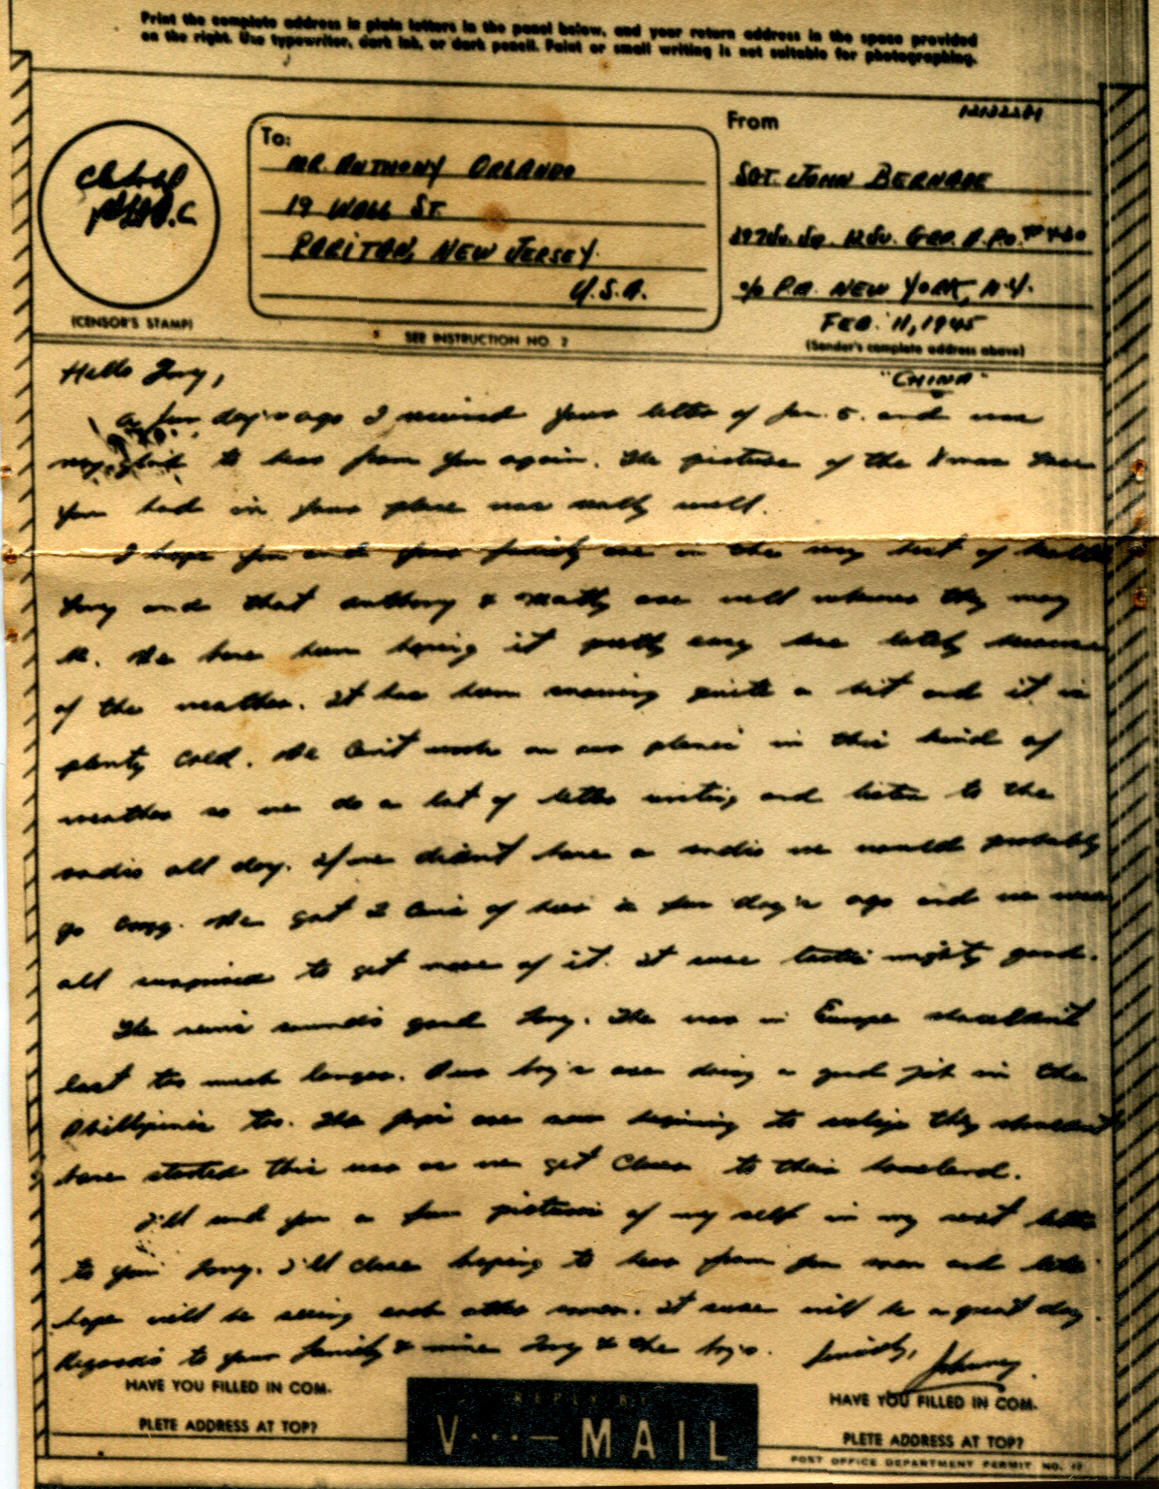 Print the complete address in plain letters in the panel below, and your return address in the space provided
on the right. Use typewriter, dark ink, or dark pencil. Faint or small writing is not suitable for photographing.
To:
MR. ANTHONY ORLANDO
19 WALL ST.
RARITAN, NEW JERSEY.
U.S.A.
From
SGT. JOHN BERNABE
A.P.O. # 460
c/o P.M. NEW YORK, N.Y.
FEB. 11, 1945
(Sender's complete address above)
(CENSOR'S STAMP)
SEE INSTRUCTION NO. 2
"CHINA"
Hello Tony,
A few day's ago I received your letter of Jan. 5. and was
very glad to hear from you again. The picture of the Xmas Tree
you had in your place was really swell.
I hope you and your family are in the very best of health
Tony and that Anthony & Matty are well wherever they may
be. We have been having it pretty easy here lately because
of the weather. It has been snowing quite a bit and it is
plenty cold. We can't work on our planes in this kind of
weather so we do a lot of letter writing and listen to the
radio all day. If we didn't have a radio we would probably
go crazy. We got 2 cans of beer a few day's ago and we were
all surprised to get more of it. It sure tastes mighty good.
The news sounds good Tony. The war in Europe shouldn't
last too much longer. Our boy's are doing a good job in the
Phillipines too. The japs are now begining to realize they shouldn't
have started this war as we get closer to their homeland.
I'll send you a few pictures of my self in my next letter
to you Tony. I'll close hoping to hear from you soon and
hope will be seeing each other soon. It sure will be a great day.
Regards to your family & mine Tony & the boy's. Sincerely, Johnny.
HAVE YOU FILLED IN COM-
PLETE ADDRESS AT TOP?
REPLY BY
V···—MAIL
HAVE YOU FILLED IN COM-
PLETE ADDRESS AT TOP?
POST OFFICE DEPARTMENT PERMIT NO.